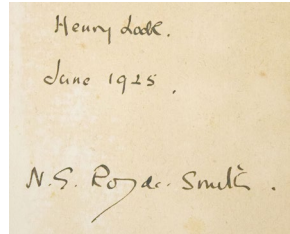 Henry Lock.
June 1925.
N. G. Royde-Smith.